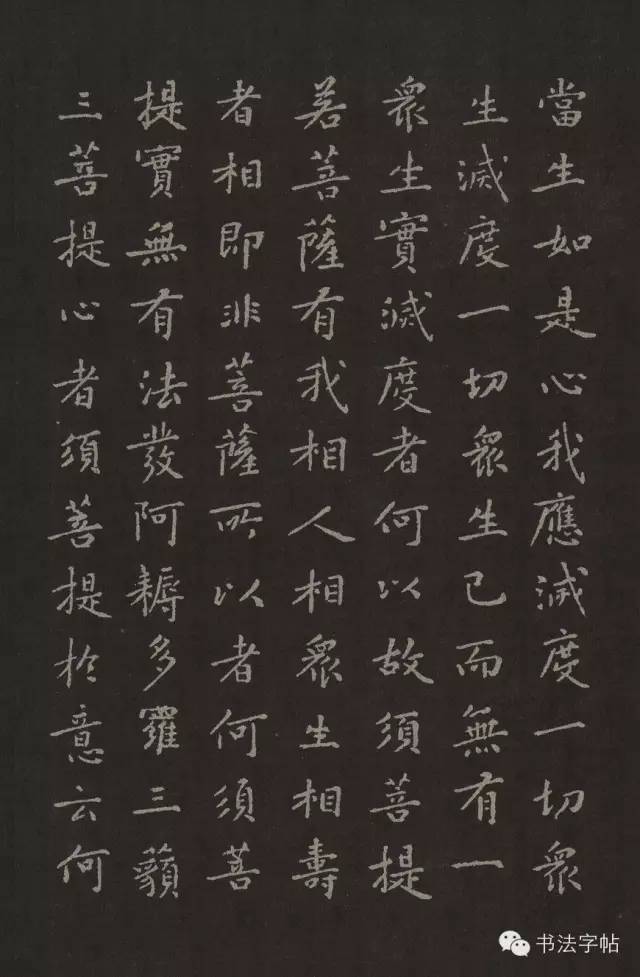 當生如是心我應滅度一切眾
生滅度一切眾生已而無有一
眾生實滅度者何以故須菩提
若菩薩有我相人相眾生相壽
者相即非菩薩所以者何須菩
提實無有法發阿耨多羅三藐
三菩提心者須菩提於意云何
书法字帖